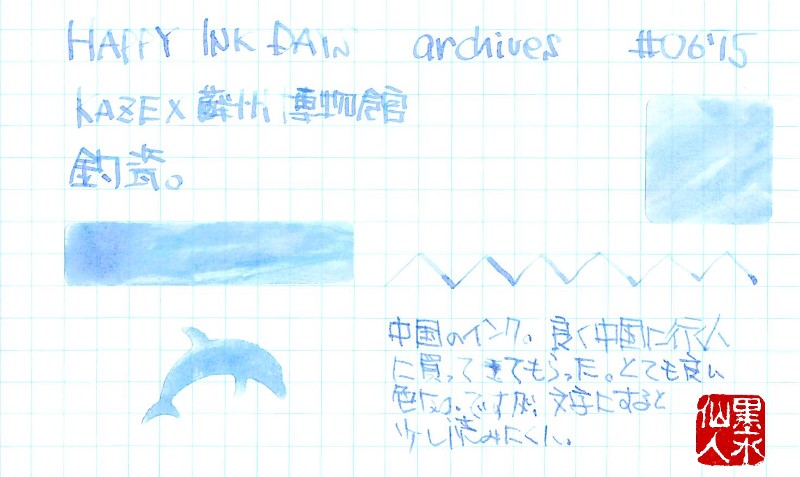 HAPPY INK DAYS archives #0675
KAZE X 蘇州博物館
鈞瓷。
中国のインク。良く中国に行く人
に買ってきてもらった。とても良い
色なのですが、文字にすると
少し読みにくい。
墨水
仙人